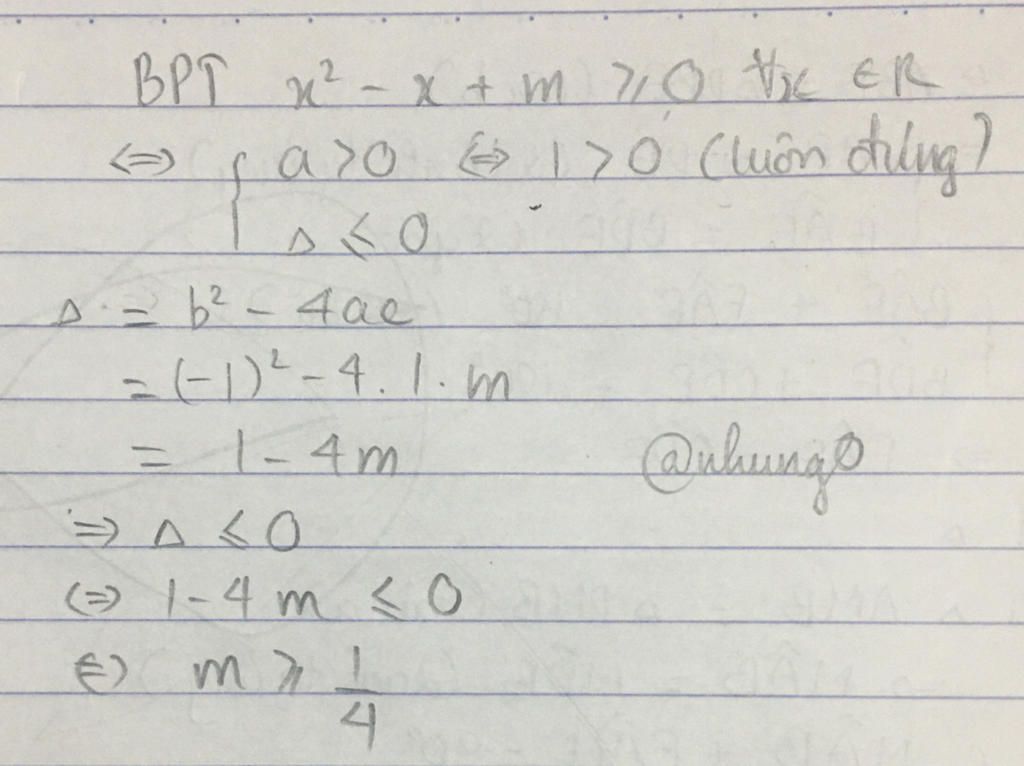 BPT x² - x + m ⩾ 0 ∀x ∈ R
⇔ { a > 0 ⇔ 1 > 0 (luôn đúng)
Δ ⩽ 0
Δ = b² - 4ac
= (-1)² - 4 . 1 . m
= 1 - 4m
@nhung0
⇒ Δ ⩽ 0
⇔ 1 - 4m ⩽ 0
⇔ m ⩾ 1/4